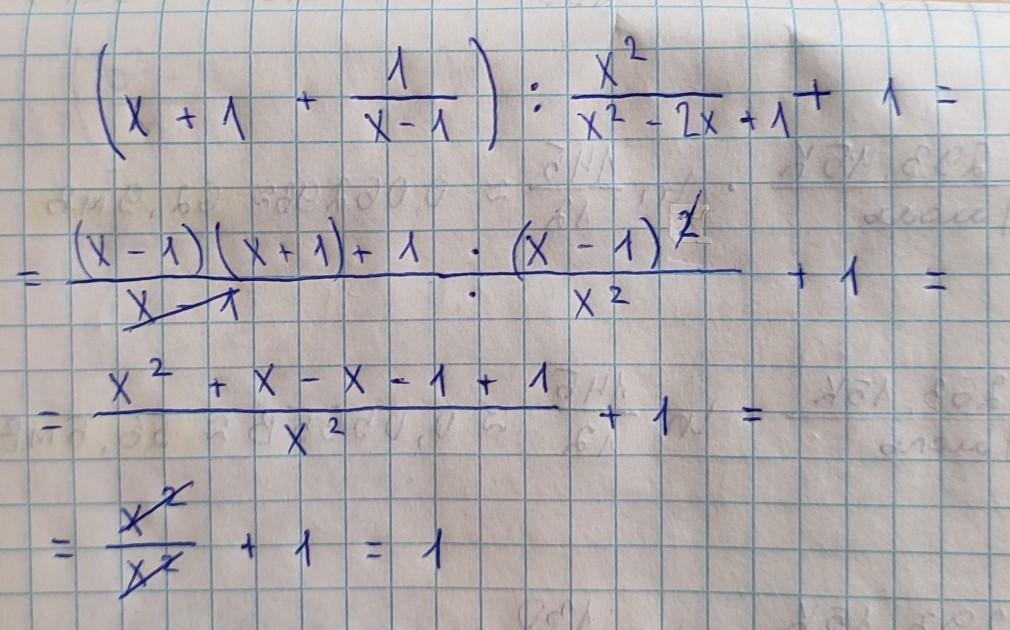 (x + 1 + 1/(x - 1)) : x²/(x² - 2x + 1) + 1 =
= ((x - 1)(x + 1) + 1)/(x - 1) : (x - 1)²/x² + 1 =
= (x² + x - x - 1 + 1)/x² + 1 =
= x²/x² + 1 = 1